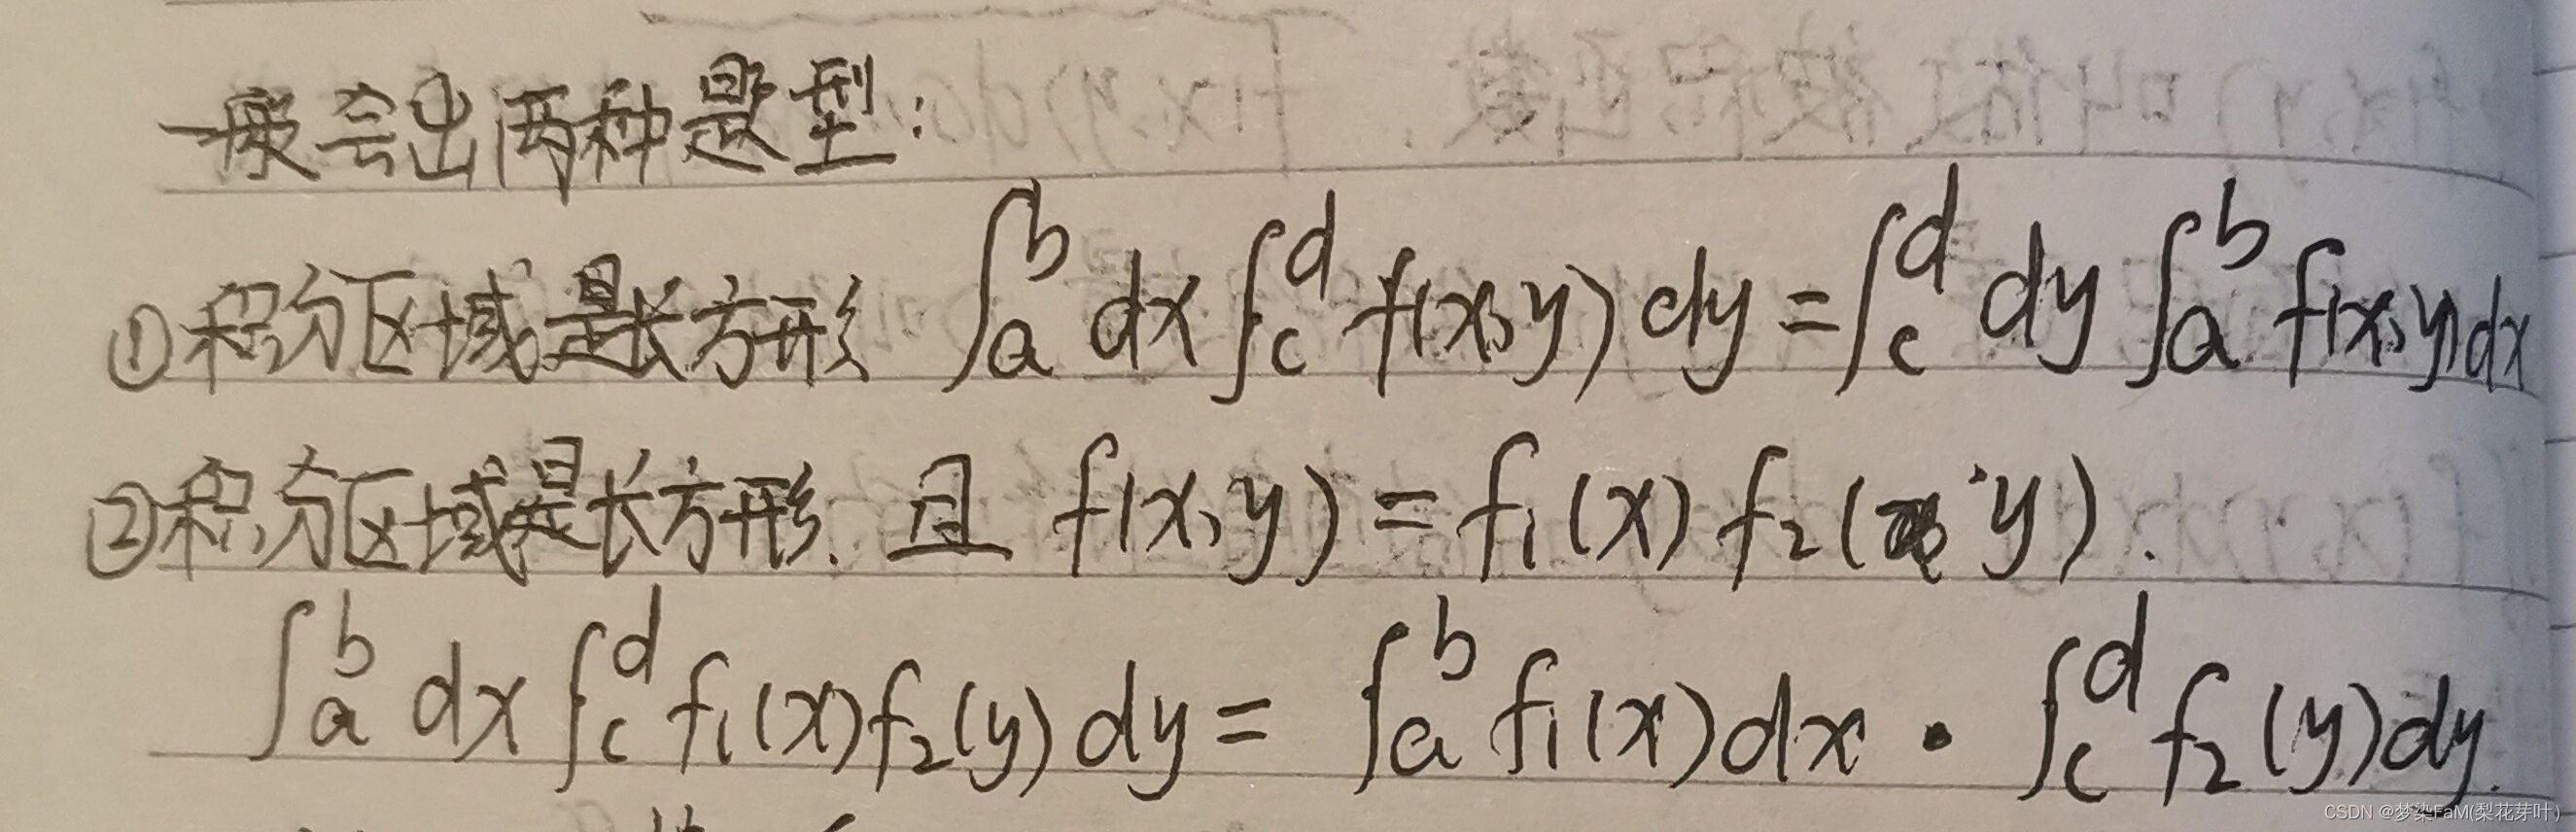 一般会出两种题型:
①积分区域是长方形 ∫_a^b dx ∫_c^d f(x,y) dy = ∫_c^d dy ∫_a^b f(x,y)dx
②积分区域是长方形. 且 f(x,y) = f₁(x) f₂(y).
∫_a^b dx ∫_c^d f₁(x)f₂(y) dy = ∫_a^b f₁(x)dx · ∫_c^d f₂(y)dy.
CSDN @梦染FaM(梨花芽叶)